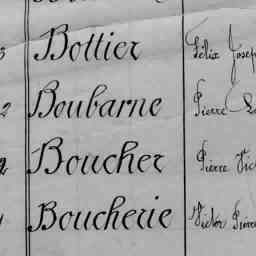 Bottier Félix Josep
2 Boubarne Pierre
2 Boucher Pierre Vic
Boucherie Victor Pierre